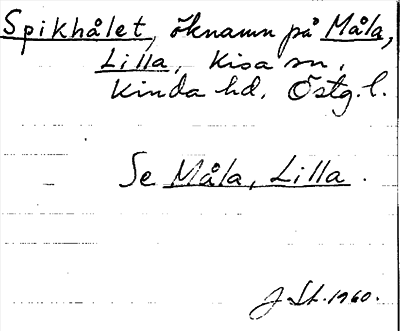 Spikhålet, öknamn på Måla,
Lilla, Kisa sn,
Kinda hd. Östg. l.
Se Måla, Lilla.
J. St. 1960.